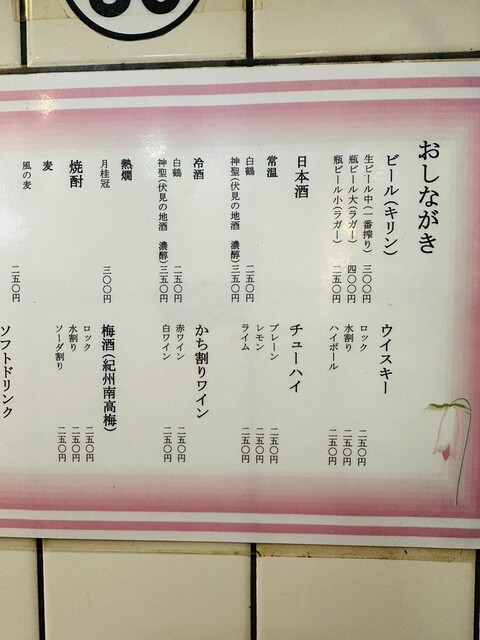 おしながき
ビール(キリン)
生ビール中(一番搾り) 三〇〇円
瓶ビール大(ラガー) 四〇〇円
瓶ビール小(ラガー) 二五〇円
日本酒
常温
白鶴 二五〇円
神聖(伏見の地酒 濃醇)三五〇円
冷酒
白鶴 二五〇円
神聖(伏見の地酒 濃醇)三五〇円
熱燗
月桂冠 三〇〇円
焼酎
麦
風の麦 二五〇円
ウイスキー
ロック 二五〇円
水割り 二五〇円
ハイボール 二五〇円
チューハイ
プレーン 二五〇円
レモン 二五〇円
ライム 二五〇円
かち割りワイン
赤ワイン 二五〇円
白ワイン 二五〇円
梅酒(紀州南高梅)
ロック 二五〇円
水割り 二五〇円
ソーダ割り 二五〇円
ソフトドリンク